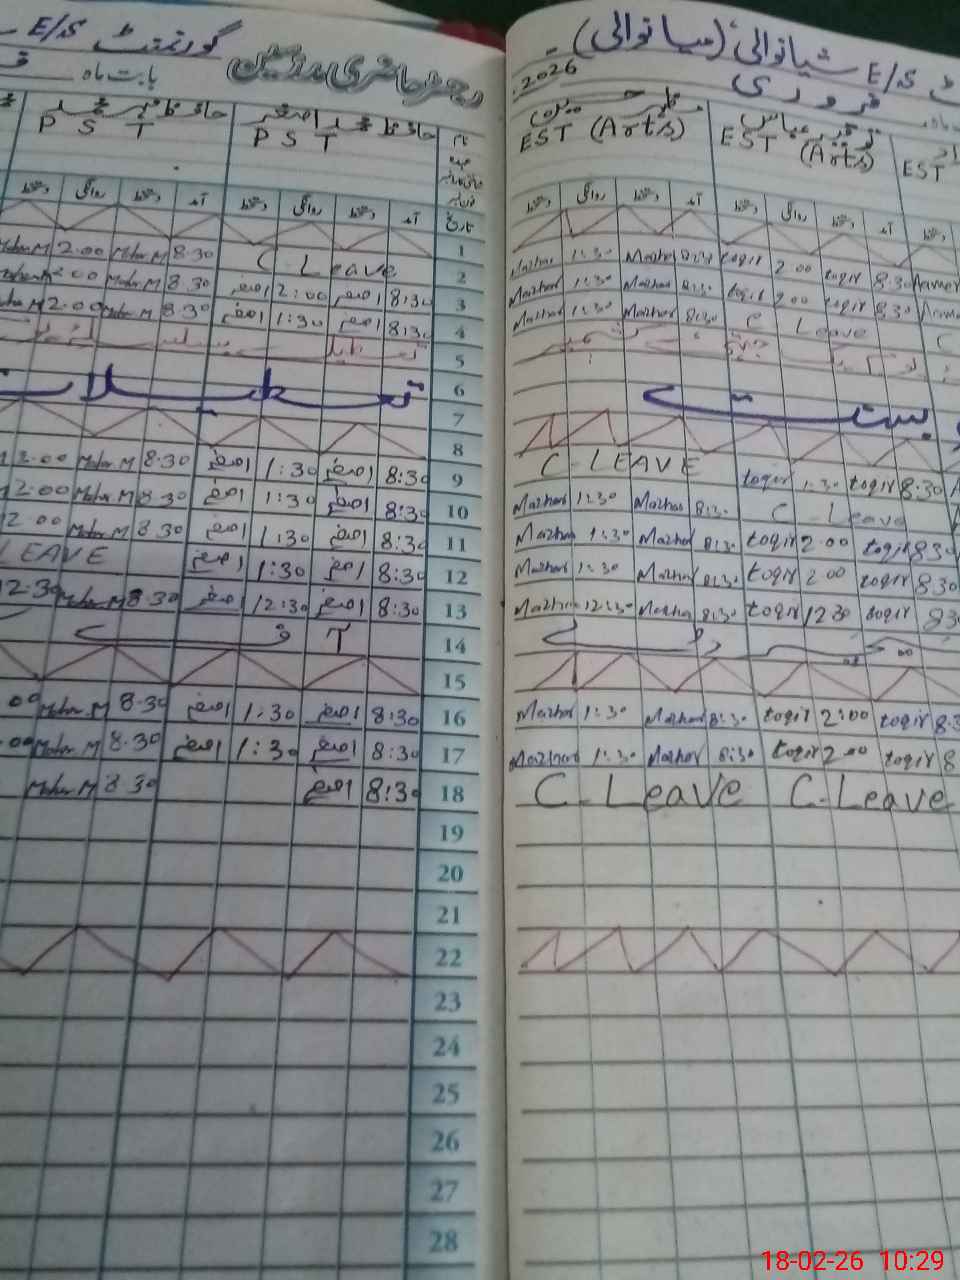 گورنمنٹ E/S
رجسٹر حاضری مدرسین
بابت ماہ
E/S شیانوالی (میانوالی)
2026 فروری
حافظ محمد اصغر
P S T
P S T
مظہر حسین
EST (Arts)
توقیر عباس
EST (Arts)
EST
نام
عہدہ
تاریخ
آمد دستخط روانگی دستخط آمد دستخط روانگی دستخط
دستخط روانگی دستخط آمد دستخط روانگی دستخط آمد دستخط
1
2.00 Mohar M 8.30 C - Leave 2 Mazhar 1:30 Mazhar 8:30 toqir 2.00 toqir 8:30
Mohar M 8.30 اصغر 2:00 اصغر 8:30 3 Mazhar 1:30 Mazhar 8:30 toqir 2.00 toqir 8:30
2.00 Mohar M 8.30 اصغر 1:30 اصغر 8:30 4 Mazhar 1:30 Mazhar 8:30 C Leave C
تعطیل 5
تعطیلات 6 بسنت
7
8
2.00 Mohar M 8.30 اصغر 1:30 اصغر 8:30 9 C - LEAVE toqir 1:30 toqir 8:30
2.00 Mohar M 8.30 اصغر 1:30 اصغر 8:30 10 Mazhar 1:30 Mazhar 8:30 C - Leave
2.00 Mohar M 8.30 اصغر 1:30 اصغر 8:30 11 Mazhar 1:30 Mazhar 8:30 toqir 2.00 toqir 8:30
LEAVE اصغر 1:30 اصغر 8:30 12 Mazhar 1:30 Mazhar 8:30 toqir 2.00 toqir 8:30
12:30 Mohar M 8.30 اصغر 12:30 اصغر 8:30 13 Mazhar 12:30 Mazhar 8:30 toqir 12 30 toqir 8:3
14
15
Mohar M 8.30 اصغر 1:30 اصغر 8:30 16 Mazhar 1:30 Mazhar 8:30 toqir 2:00 toqir 8:3
Mohar M 8.30 اصغر 1:30 اصغر 8:30 17 Mazhar 1:30 Mazhar 8:30 toqir 2.00 toqir 8
Mohar M 8.30 اصغر 8:30 18 C - Leave C - Leave
19
20
21
22
23
24
25
26
27
28
18-02-26 10:29